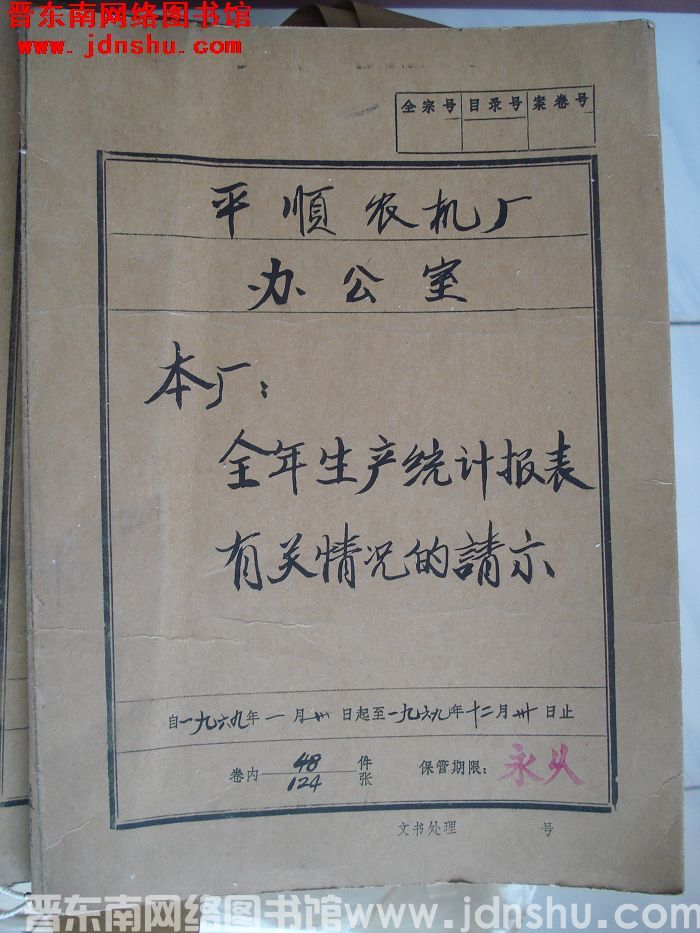 晋东南网络图书馆
www.jdnshu.com
全宗号 目录号 案卷号
平順农机厂
办公室
本厂：
全年生产统计报表
有关情况的請示
自一九六九年一月 日起至一九六九年十二月卅日止
卷内 48 件
124 张
保管期限：永久
文书处理 号
晋东南网络图书馆www.jdnshu.com